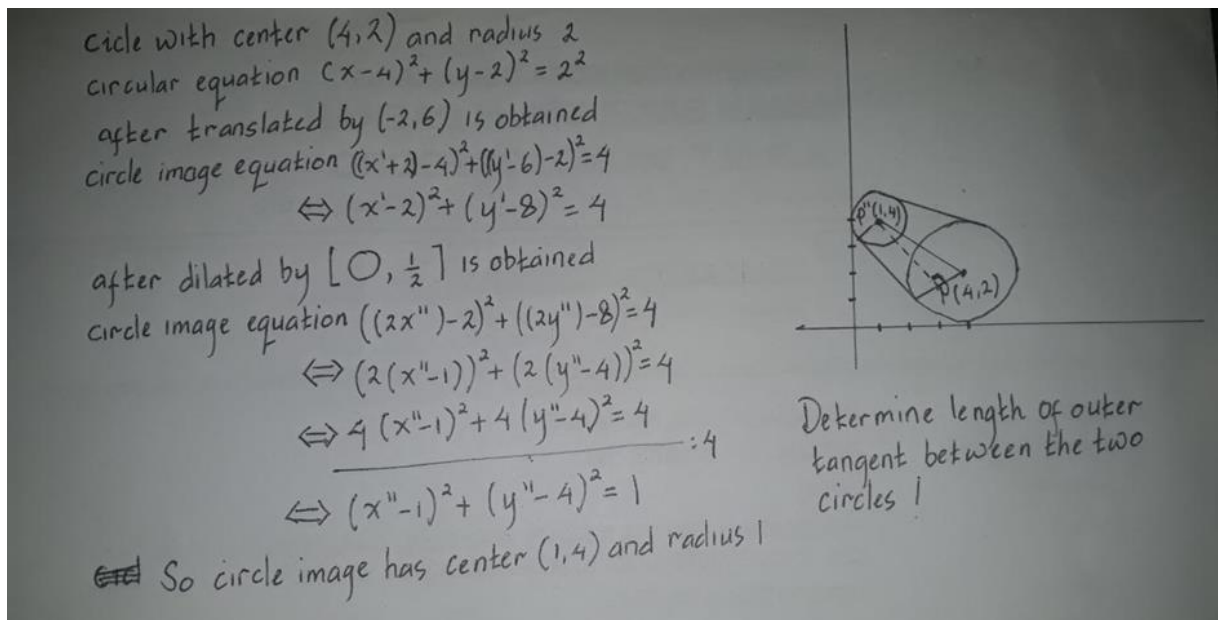 cicle with center (4,2) and radius 2
circular equation (x-4)²+(y-2)²=2²
after translated by (-2,6) is obtained
circle image equation ((x'+2)-4)²+((y'-6)-2)²=4
⇔ (x'-2)²+(y'-8)²=4
after dilated by [O, 1/2] is obtained
circle image equation ((2x")-2)²+((2y")-8)²=4
⇔ (2(x"-1))²+(2(y"-4))²=4
⇔ 4(x"-1)²+4(y"-4)²=4
:4
⇔ (x"-1)²+(y"-4)²=1
So circle image has center (1,4) and radius 1
P"(1,4)
P(4,2)
Determine length of outer
tangent between the two
circles !